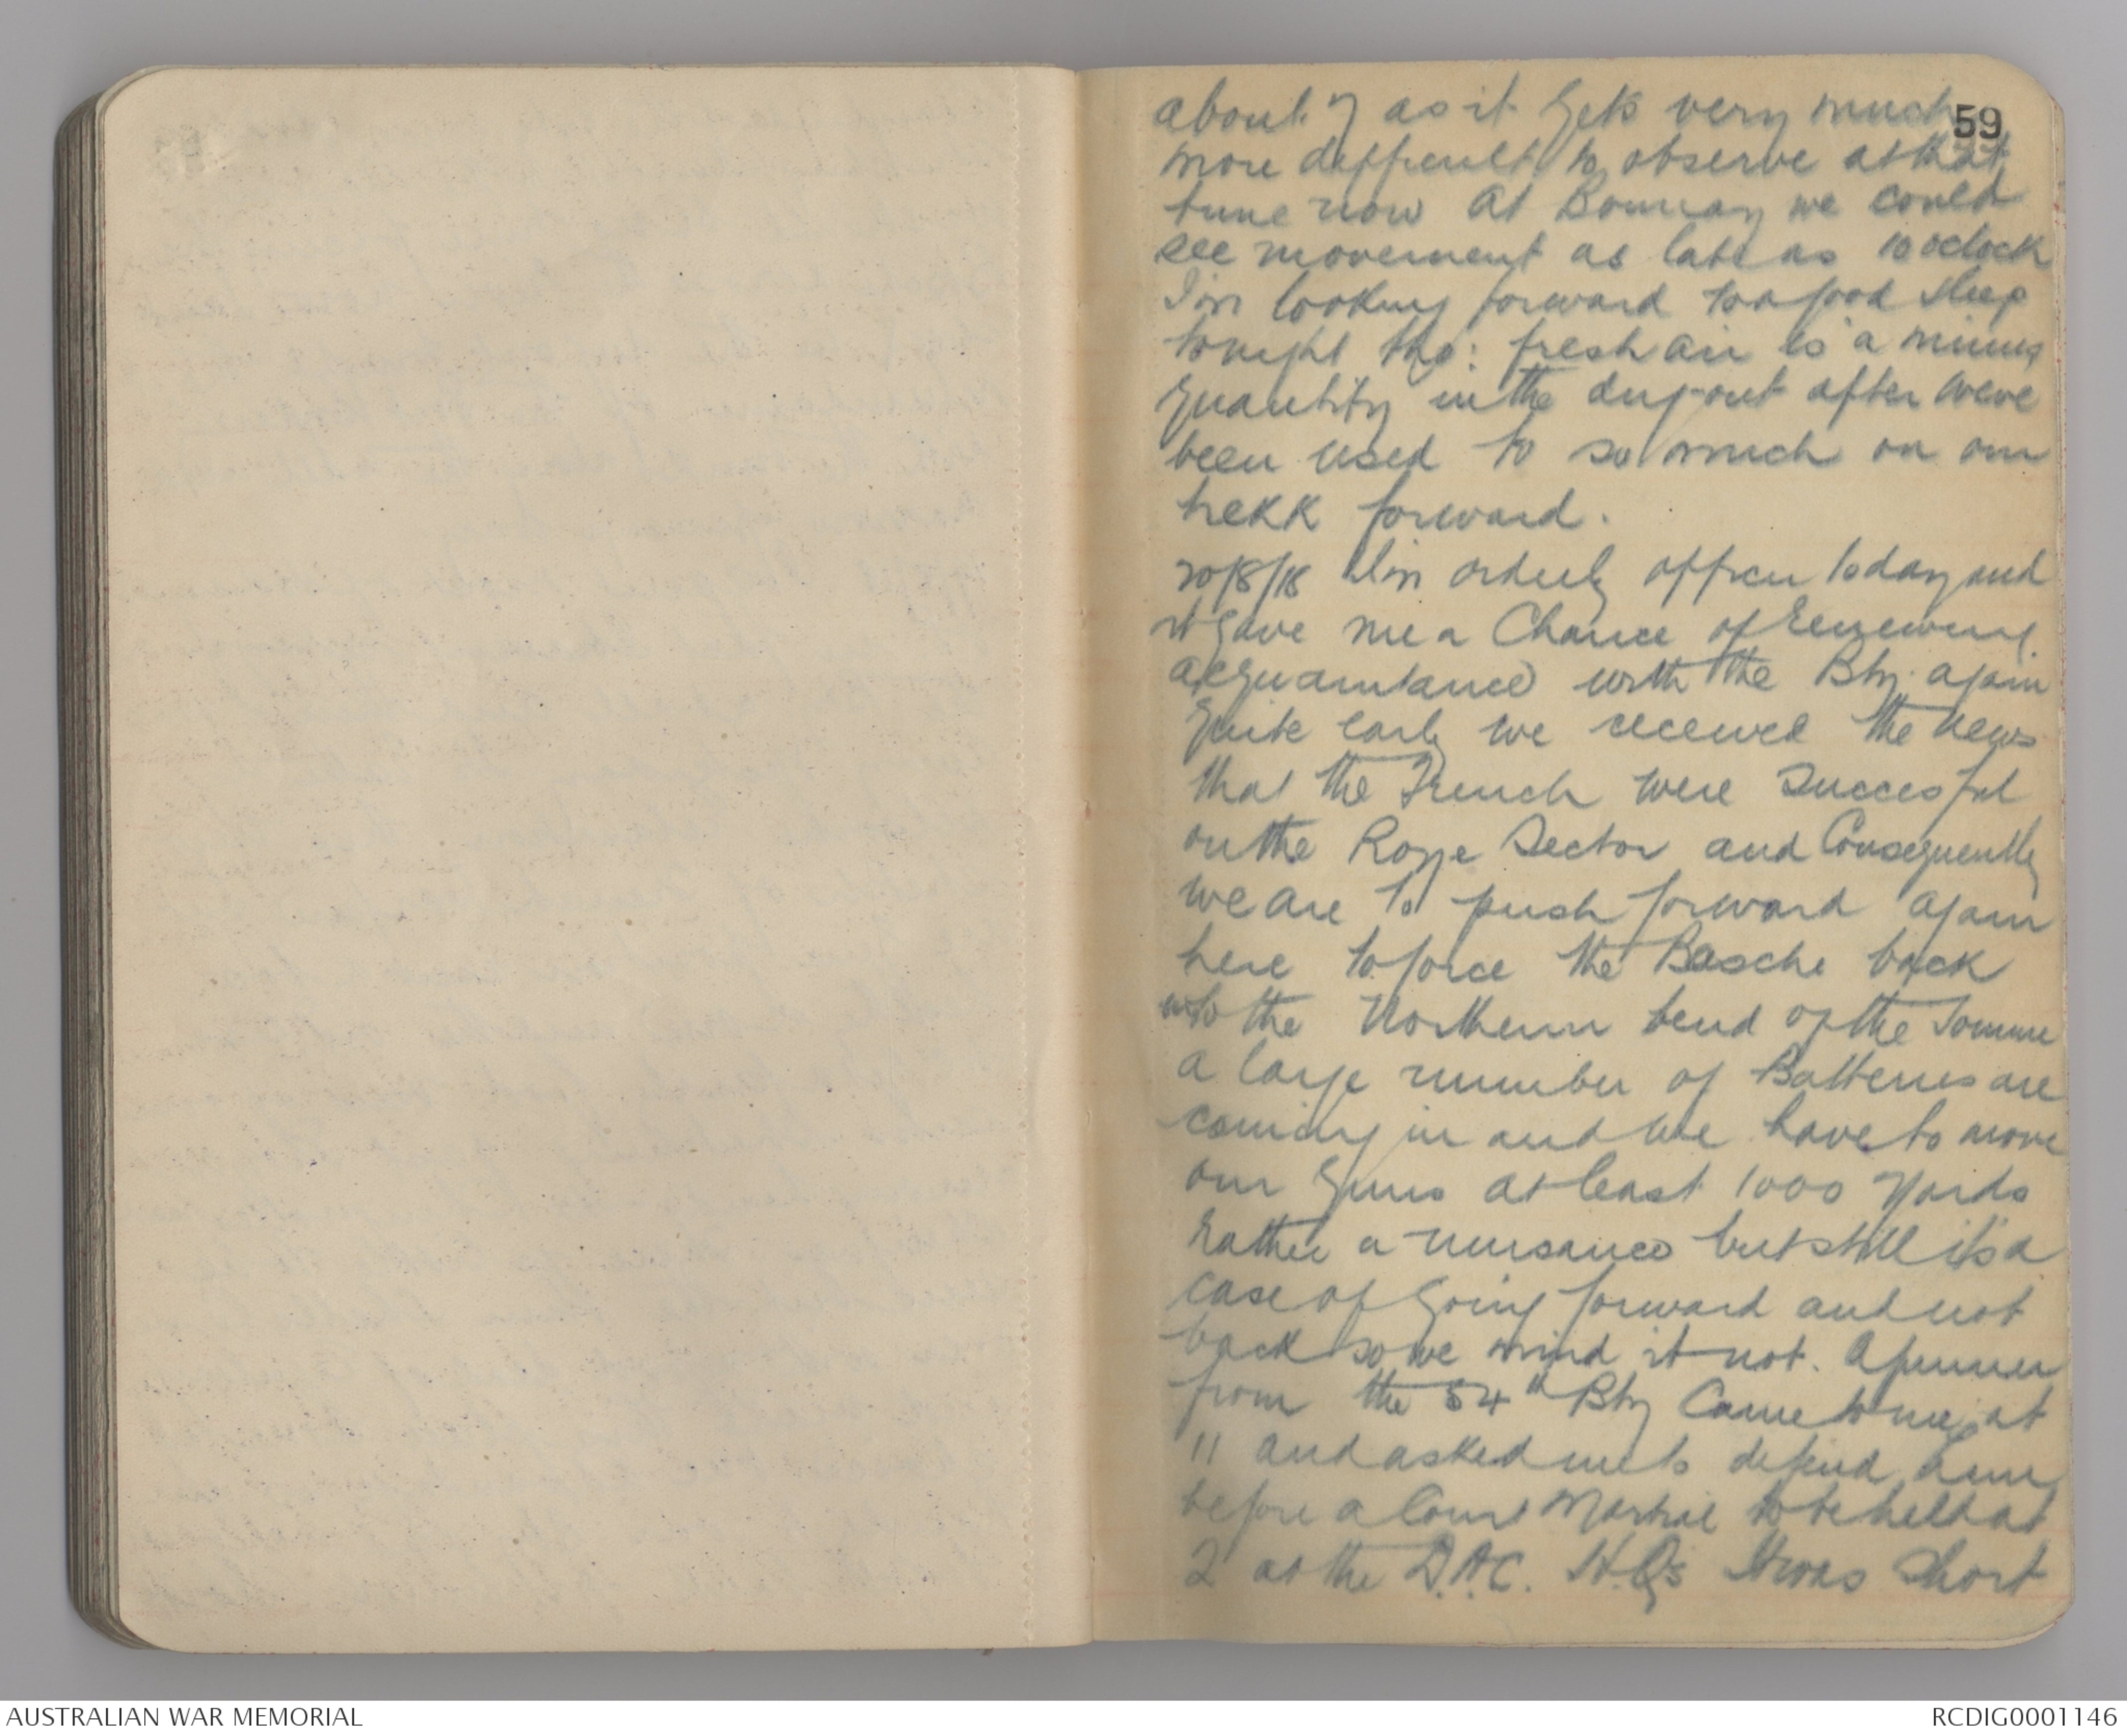 59
about 7 as it gets very much
more difficult to observe at that
time now at Bonnay we could
see movement as late as 10 oclock
I'm looking forward to a good sleep
tonight tho: fresh air is a minus
quantity in the dug-out after weve
been used to so much on our
trekk forward.
20/8/18 I'm orderly officer today and
it gave me a chance of renewing
acquaintance with the Bty. again
Quite early we received the news
that the French were successful
on the Roye Sector and Consequently
we are to push forward again
here to force the Basche back
into the Northern bend of the Somme
a large number of Batteries are
coming in and we have to move
our guns at least 1000 yards
rather a nuisance but still it's a
case of going forward and not
back so we mind it not. A gunner
from the 54th Bty Came to me at
11 and asked me to defend him
before a Court Martial to be held at
2 at the D.A.C. H.Q's It was short
AUSTRALIAN WAR MEMORIAL
RCDIG0001146